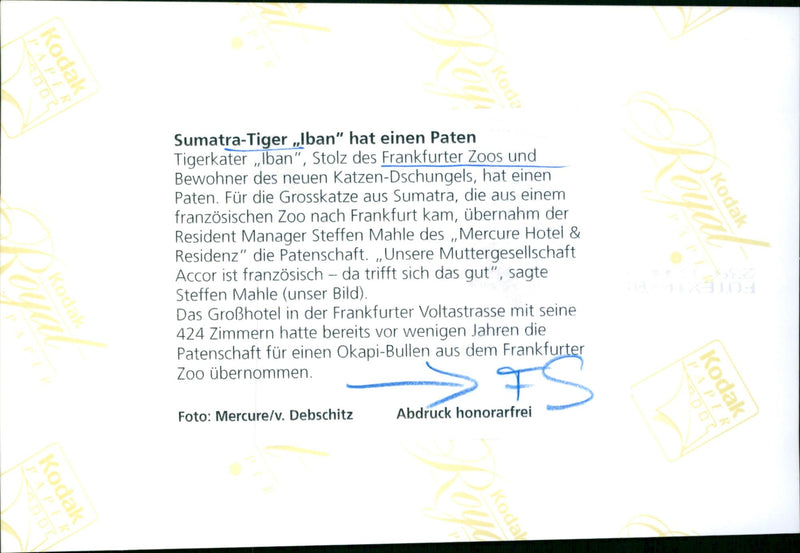 Sumatra-Tiger „Iban“ hat einen Paten
Tigerkater „Iban“, Stolz des Frankfurter Zoos und
Bewohner des neuen Katzen-Dschungels, hat einen
Paten. Für die Grosskatze aus Sumatra, die aus einem
französischen Zoo nach Frankfurt kam, übernahm der
Resident Manager Steffen Mahle des „Mercure Hotel &
Residenz“ die Patenschaft. „Unsere Muttergesellschaft
Accor ist französisch – da trifft sich das gut“, sagte
Steffen Mahle (unser Bild).
Das Großhotel in der Frankfurter Voltastrasse mit seine
424 Zimmern hatte bereits vor wenigen Jahren die
Patenschaft für einen Okapi-Bullen aus dem Frankfurter
Zoo übernommen.
FS
Foto: Mercure/v. Debschitz Abdruck honorarfrei
Kodak
PAPER
Royal
Kodak
PAPER
Royal
Kodak
PAPER
Royal
Kodak
PAPER
Kodak
PAPER
Kodak
PAPER
Royal
Kodak